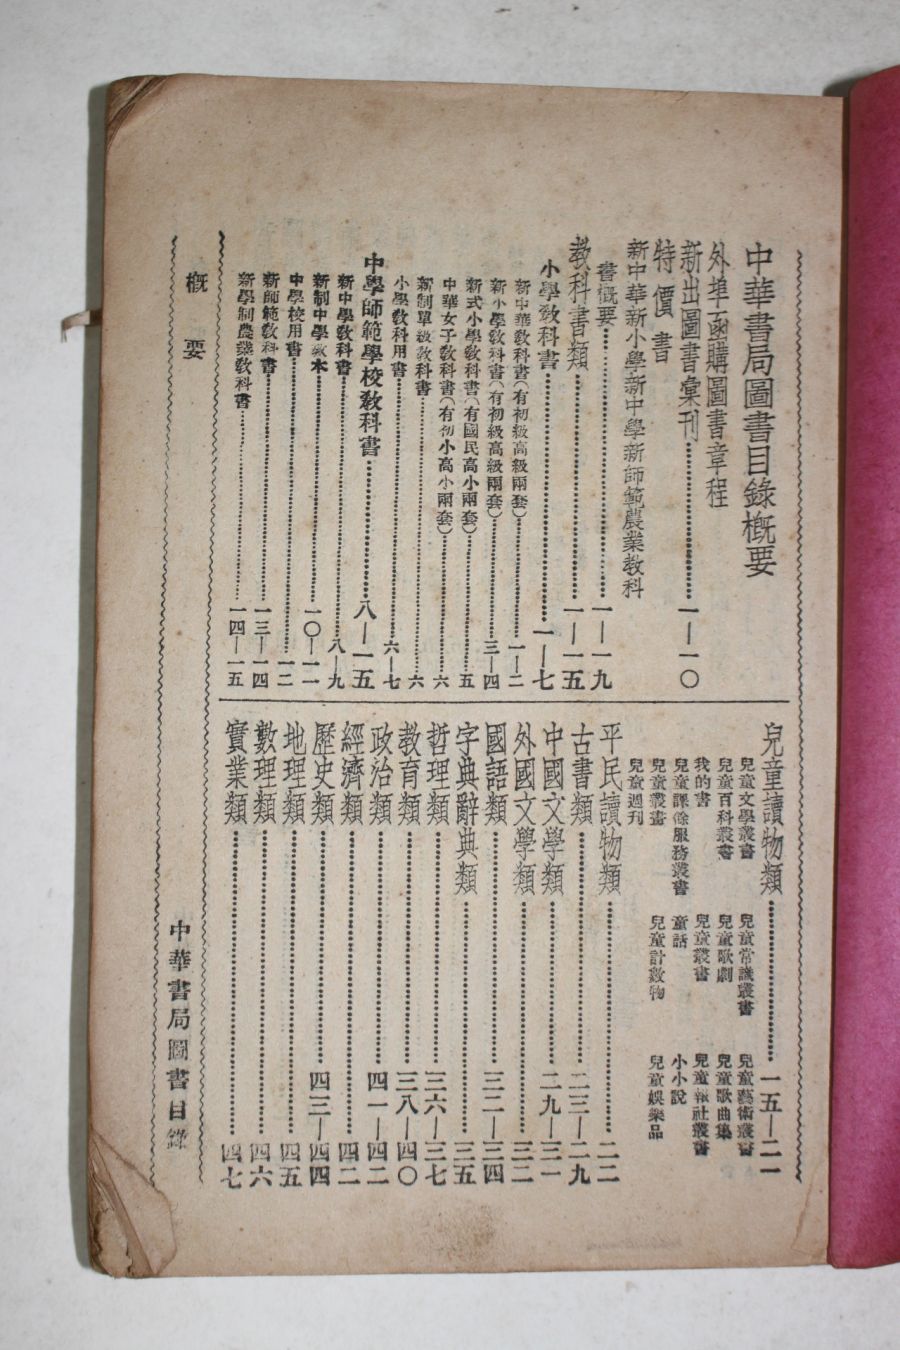 中華書局圖書目錄概要
外埠函購圖書章程
新出圖書彙刊……一—一〇
特價書
新中華新小學新中學新師範農業教科
書概要……一—一九
教科書類……一—一五
小學教科書……一—七
新中華教科書(有初級高級兩套)……一—二
新小學教科書(有初級高級兩套)……三—四
新式小學教科書(有國民高小兩套)……五
中華女子教科書(有初小高小兩套)……六
新制單級教科書……六
小學教科用書……六—七
中學師範學校教科書……八—一五
新中學教科書……八—九
新制中學教本……一〇—一一
中學校用書……一二
新師範教科書……一三—一四
新學制農業教科書……一四—一五
兒童讀物類……一五—二一
兒童文學叢書 兒童常識叢書 兒童藝術叢書
兒童百科叢書 兒童歌劇 兒童歌曲集
我的書 兒童叢書 兒童報社叢書
兒童課餘服務叢書 童話 小小說
兒童叢畫 兒童計數物 兒童娛樂品
兒童週刊
平民讀物類……二二
古書類……二三—二九
中國文學類……二九—三一
外國文學類……三二
國語類……三二—三四
字典辭典類……三五
哲理類……三六—三七
教育類……三八—四〇
政治類……四一—四二
經濟類……四二
歷史類……四三—四四
地理類……四五
數理類……四六
實業類……四七
概要
中華書局圖書目錄